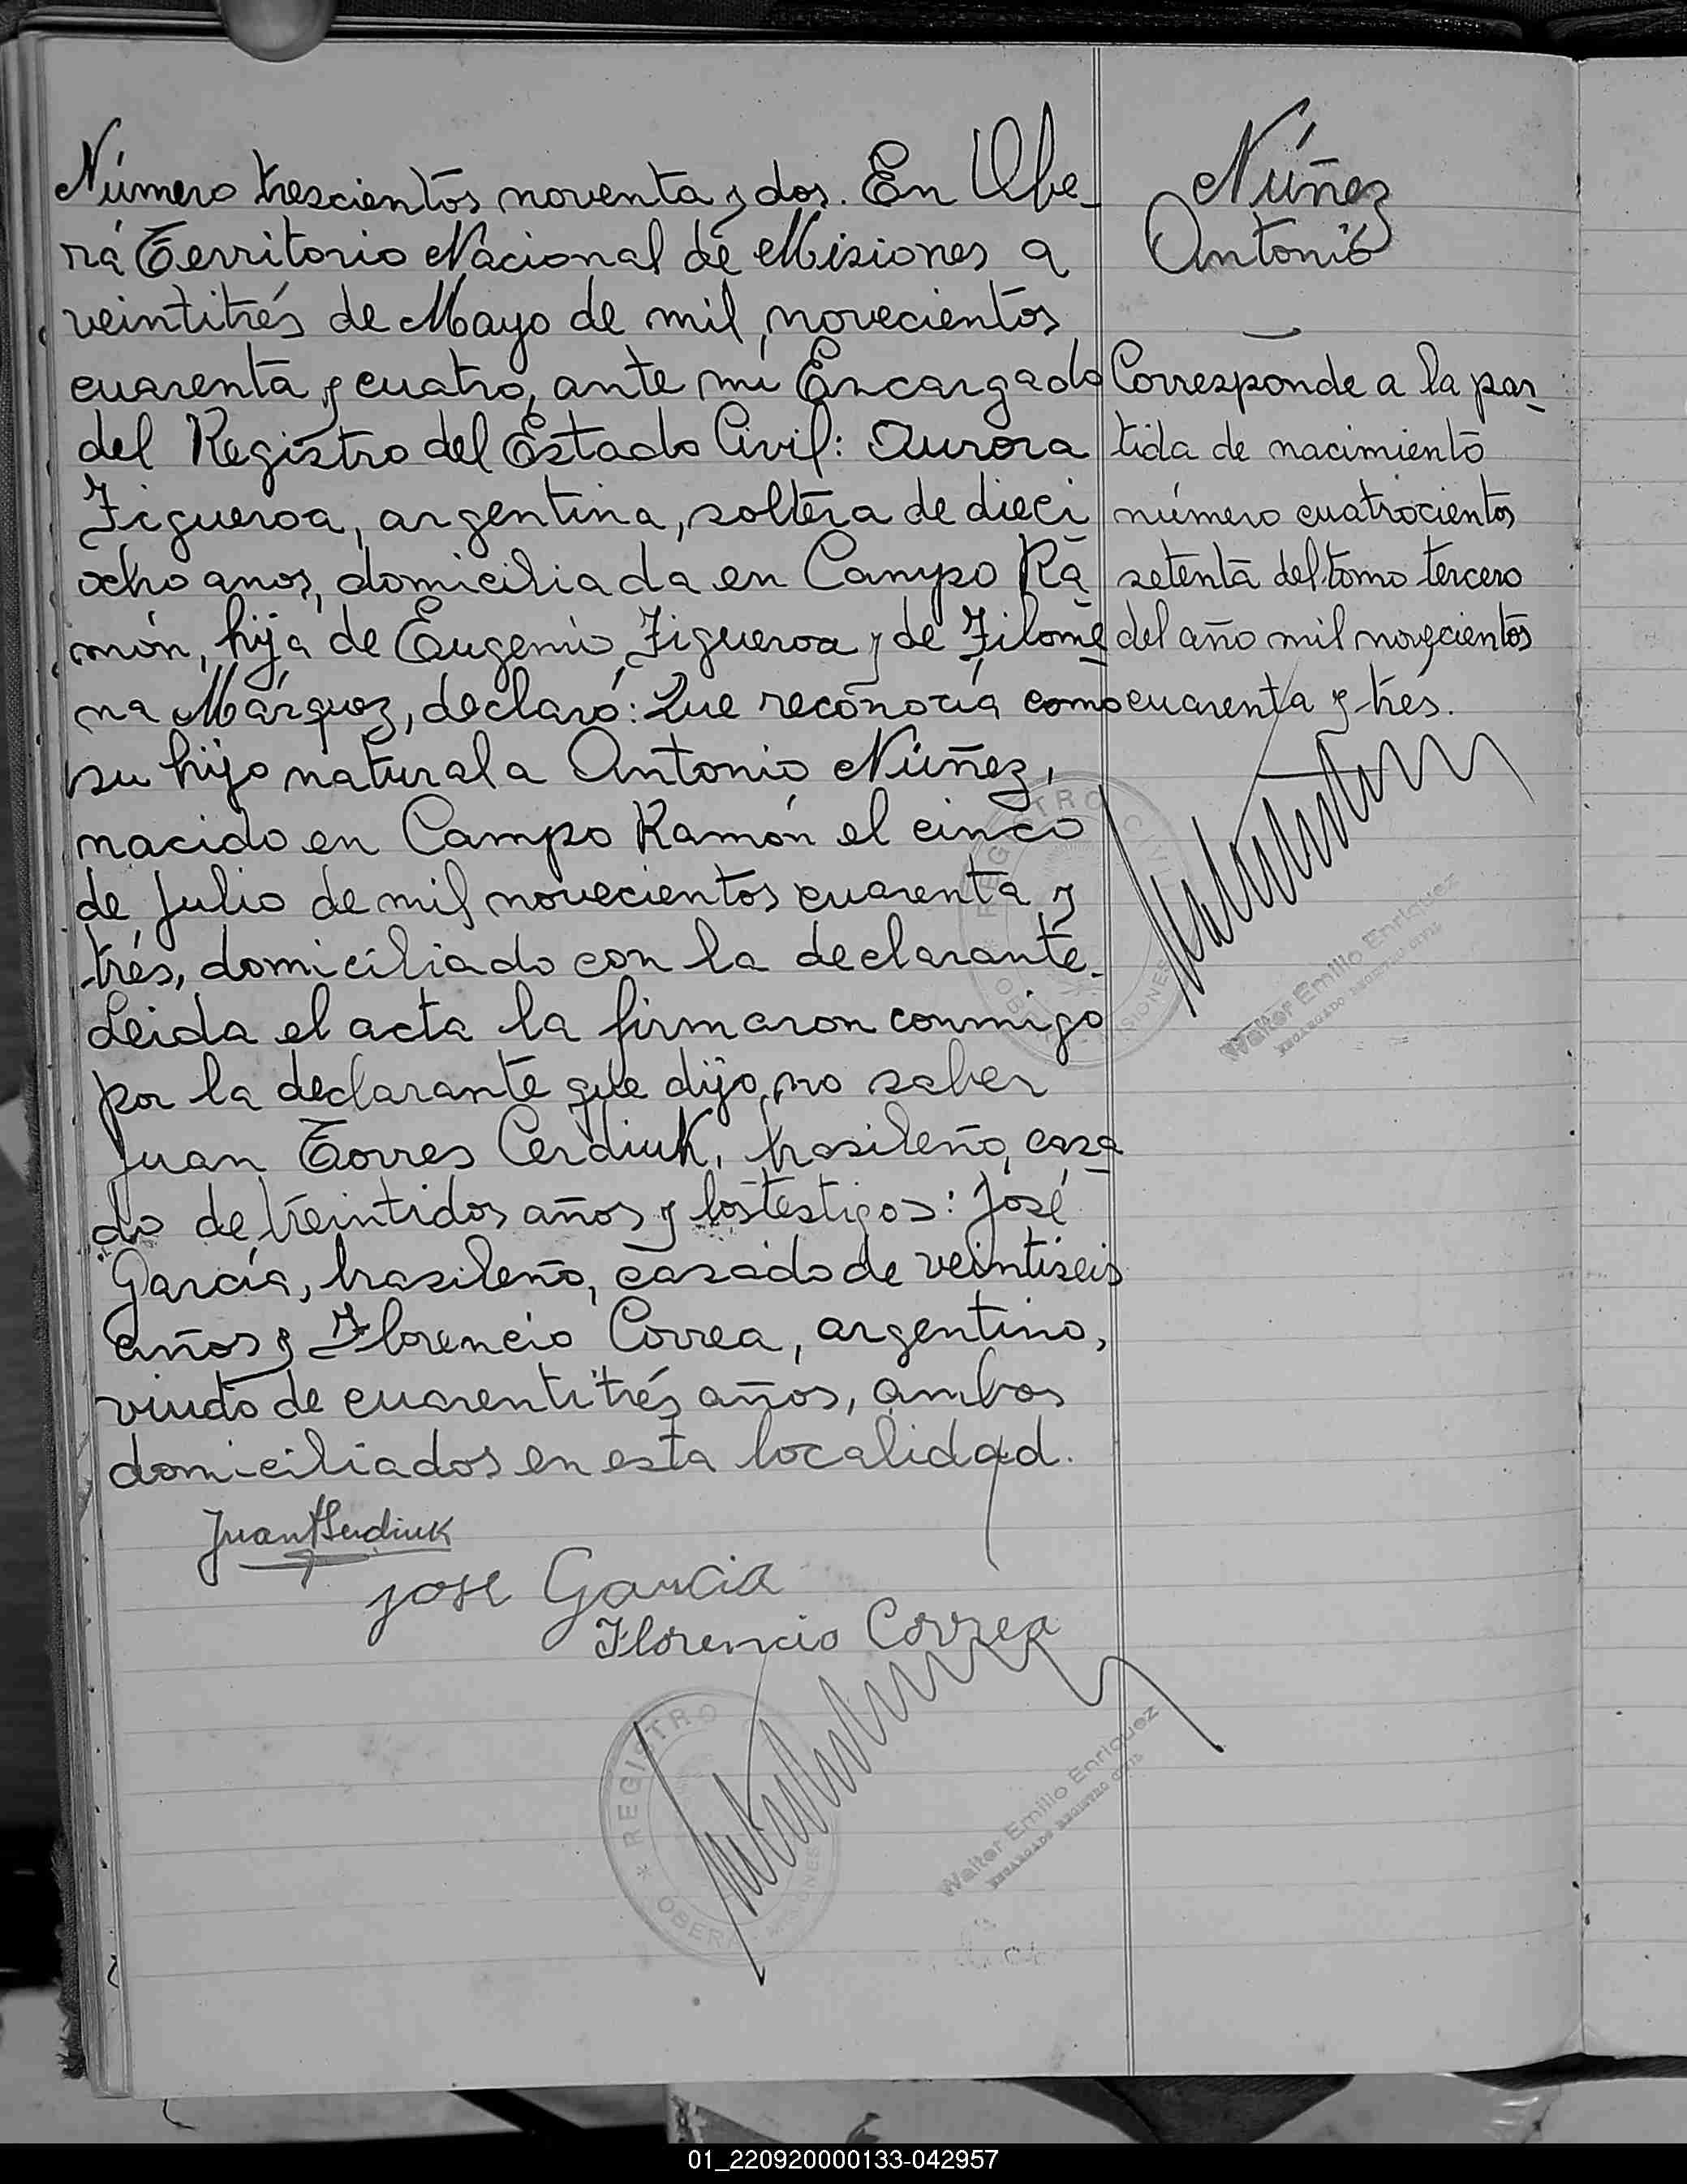 Número trescientos noventa y dos. En Obe-
rá Territorio Nacional de Misiones a
veintitrés de Mayo de mil novecientos
cuarenta y cuatro, ante mí Encargado
del Registro del Estado Civil: Aurora
Figueroa, argentina, soltera de dieci
ocho anos, domiciliada en Campo Ra
món, hija de Eugenio Figueroa y de Filome
na Márquez, declaró: Que reconocía como
su hijo natural a Antonio Núñez,
nacido en Campo Ramón el cinco
de Julio de mil novecientos cuarenta y
trés, domiciliado con la declarante.
Leida el acta la firmaron conmigo
por la declarante que dijo no saber
Juan Torres Cerdiuk, brasileño, casa
do de treintidos años y los testigos: José
García, brasileño, casado de veintiseis
años y Florencio Correa, argentino,
viudo de cuarentitrés años, ambos
domiciliados en esta localidad.
Jose Garcia
Florencio Correa
REGISTRO
OBERA MISIONES
Walter Emilio Enriquez
ENCARGADO REGISTRO CIVIL
Núñez
Antonio
Corresponde a la par-
tida de nacimiento
número cuatrocientos
setenta del tomo tercero
del año mil novecientos
cuarenta y trés.
REGISTRO CIVIL
OBERA MISIONES
Walter Emilio Enriquez
ENCARGADO REGISTRO CIVIL
01_220920000133-042957